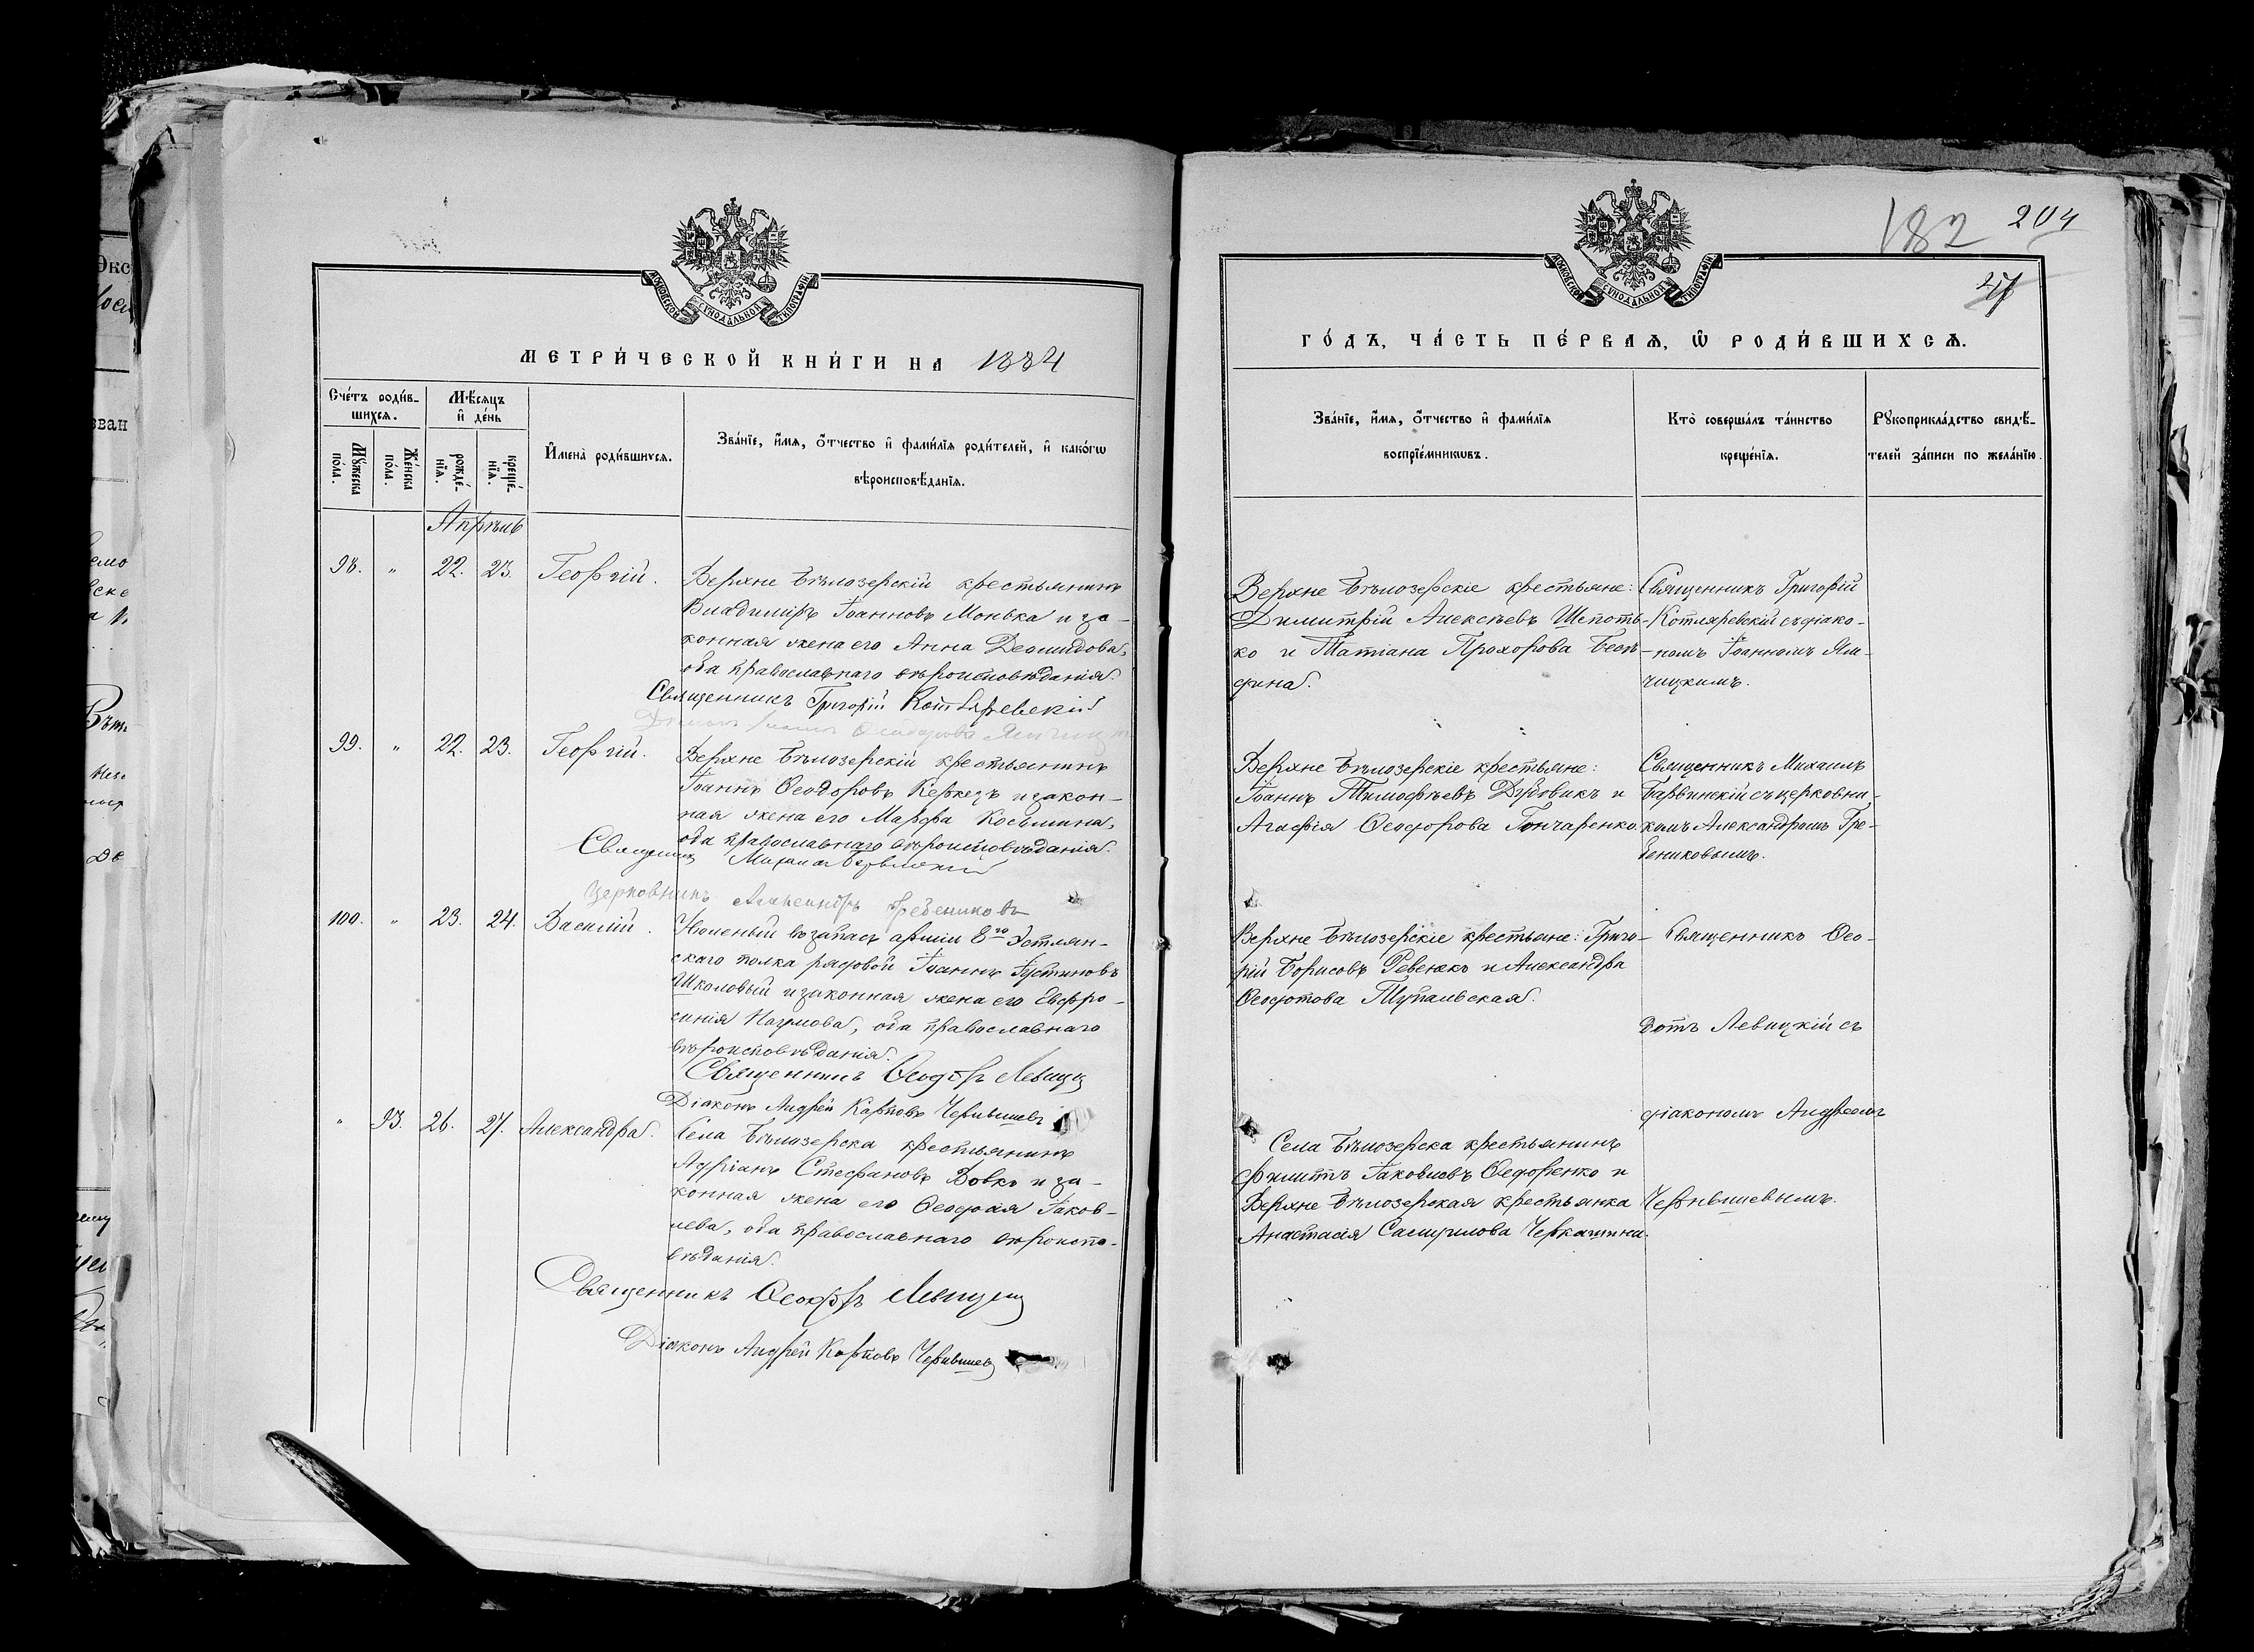 МОСКОВСКОЙ СѴНОДАЛЬНОЙ ТИПОГРАФІИ
МЕТРИ́ЧЕСКОЙ КНИ́ГИ НА 1884
Сче́тъ роди́вшихсѧ.
Мꙋ́жеска по́ла.
Же́нска по́ла.
Мѣ́сѧцъ и҆ де́нь
рожде́нїѧ.
креще́нїѧ.
И҆мена̀ роди́вшихсѧ.
Зва́нїе, и҆́мѧ, ѻ҆́тчество и҆ фами́лїѧ роди́телей, и҆ како́гѡ
вѣроисповѣ́данїѧ.
Апрѣль
98. " 22. 23. Георгій.
Верхне Бѣлозерскій крестьянинъ
Владиміръ Іоанновъ Монька и за-
конная жена его Анна Деомидова,
оба православнаго вѣроисповѣданія.
Священникъ Григорій Котляревскій
99. " 22. 23. Георгій.
Верхне Бѣлозерскій крестьянинъ
Іоаннъ Ѳеодоровъ Кержезъ и закон-
ная жена его Марѳа Косьмина,
оба православнаго вѣроисповѣданія.
Священникъ Михаилъ Барвинскій
Церковникъ Александръ Гребениковъ
100. " 23. 24. Василій.
въ запасъ арміи 8го Эстлян-
скаго полка рядовой Іоаннъ Іустиновъ
Школовый и законная жена его Евфро-
синія Наумова, оба православнаго
вѣроисповѣданія.
Священникъ Ѳеодотъ Левицкій
Діаконъ Андрей Карповъ Чернышевъ
" 93. 26. 27. Александра.
Села Бѣлозерска крестьянинъ
Адріанъ Стефановъ Вовкъ и за-
конная жена его Ѳеодосія Іаков-
лева, оба православнаго вѣроиспо-
вѣданія.
Священникъ Ѳеодотъ Левицкій
Діаконъ Андрей Карповъ Чернышевъ
182 204
МОСКОВСКОЙ СѴНОДАЛЬНОЙ ТИПОГРАФІИ
ГО́ДЪ, ЧА́СТЬ ПЕ́РВАѦ, Ѡ҆ РОДИ́ВШИХСѦ.
Зва́нїе, и҆́мѧ, ѻ҆́тчество и҆ фами́лїѧ
воспрїе́мникѡвъ.
Кто̀ соверша́лъ та́инство
креще́нїѧ.
Рꙋкоприкла́дство свидѣ́-
телей за́писи по жела́нїю.
Верхне Бѣлозерскіе крестьяне:
Димитрій Алексѣевъ Шепоть-
ко и Татіана Прохорова
Священникъ Григорій
Котляревскій съ діако-
номъ Іоанномъ Ям-
чицкимъ.
Верхне Бѣлозерскіе крестьяне:
Іоаннъ Тимофѣевъ Дубовикъ и
Агафія Ѳеодорова Гончаренко.
Священникъ Михаилъ
Барвинскій съ церковни-
комъ Александромъ Гре-
бениковымъ.
Верхне Бѣлозерскіе крестьяне: Григо-
рій Борисовъ Ревенко и Александра
Ѳеодотова Тупальская.
Священникъ Ѳео-
дотъ Левицкій съ
діакономъ Андреемъ
Чернышевымъ.
Села Бѣлозерска крестьянинъ
Филиппъ Іаковлевъ Ѳедоренко и
Верхне Бѣлозерская крестьянка
Анастасія Самуилова Черкашина.